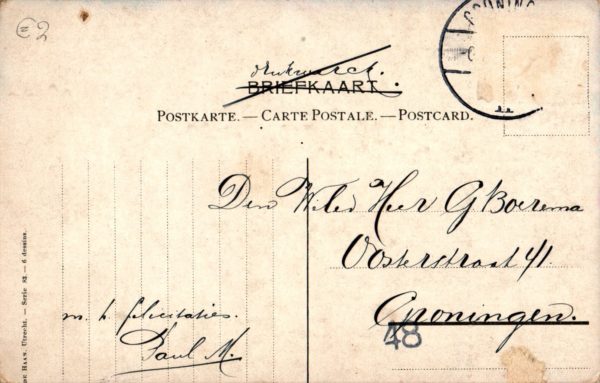 €2
GRONING
drukwerck.
BRIEFKAART.
POSTKARTE. — CARTE POSTALE. — POSTCARD.
Den WelEd Heer G Boerema
Oosterstraat 41
Groningen.
48
m. h. felicitaties.
Paul M.
DE HAAN, Utrecht. — Serie 83. — 6 dessins.